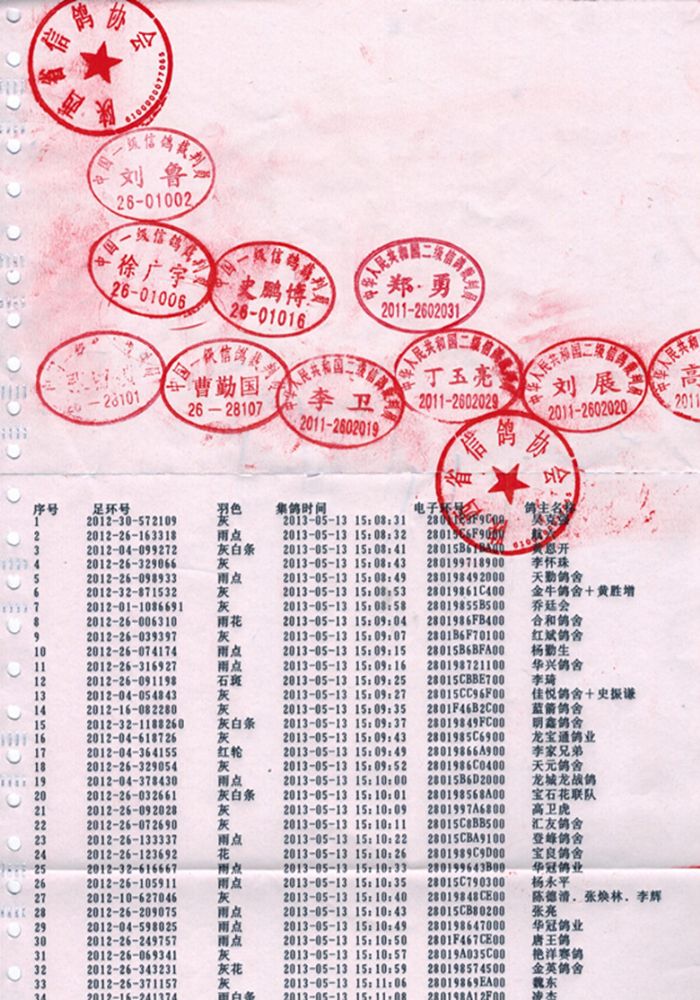 陕西省信鸽协会
6100000077069
中国一级信鸽裁判员
刘 鲁
26-01002
中国一级信鸽裁判员
徐广宇
26-01006
中国一级信鸽裁判员
史鹏博
26-01016
中华人民共和国二级信鸽裁判员
郑·勇
2011-2602031
26-28101
中国一级信鸽裁判员
曹勤国
26-28107
中华人民共和国二级信鸽裁判员
李 卫
2011-2602019
中华人民共和国二级信鸽裁判员
丁玉亮
2011-2602029
中华人民共和国二级信鸽裁判员
刘 展
2011-2602020
高
2011-
陕西省信鸽协会
序号 足环号 羽色 集鸽时间 电子环号 鸽主名称
1 2012-30-572109 灰 2013-05-13 15:08:31
2 2012-26-163318 雨点 2013-05-13 15:08:32
3 2012-04-099272 灰白条 2013-05-13 15:08:41 黄恩开
4 2012-26-329066 灰 2013-05-13 15:08:43 280199718900 李怀珠
5 2012-26-098933 雨点 2013-05-13 15:08:49 280198492000 天勤鸽舍
6 2012-32-871532 灰 2013-05-13 15:08:53 28019861C400 金牛鸽舍+黄胜增
7 2012-01-1086691 灰 2013-05-13 15:08:58 28019855B500 乔廷会
8 2012-26-006310 雨花 2013-05-13 15:09:04 2801986FB400 合和鸽舍
9 2012-26-039397 灰 2013-05-13 15:09:07 2801B6F70100 红斌鸽舍
10 2012-26-074174 雨点 2013-05-13 15:09:15 28015B6BFA00 杨勤生
11 2012-26-316927 雨点 2013-05-13 15:09:16 280198721100 华兴鸽舍
12 2012-26-091198 石斑 2013-05-13 15:09:25 28015CBBE700 李琦
13 2012-04-054843 灰 2013-05-13 15:09:27 28015CC96F00 佳悦鸽舍+史振谦
14 2012-16-082280 灰 2013-05-13 15:09:35 2801F46B2C00 蓝箭鸽舍
15 2012-32-1188260 灰白条 2013-05-13 15:09:37 28019849FC00 明鑫鸽舍
16 2012-04-618726 灰 2013-05-13 15:09:43 2801985C6900 龙宝通鸽业
17 2012-04-364155 红轮 2013-05-13 15:09:49 28019866A900 李家兄弟
18 2012-26-329054 灰 2013-05-13 15:09:52 2801986C0400 天元鸽舍
19 2012-04-378430 雨点 2013-05-13 15:10:00 28015B6D2000 龙城龙战鸽
20 2012-26-032661 灰白条 2013-05-13 15:10:01 280198568A00 宝石花联队
21 2012-26-092028 灰 2013-05-13 15:10:09 2801997A6800 高卫虎
22 2012-26-072690 灰 2013-05-13 15:10:11 28015C8BB500 汇友鸽舍
23 2012-26-133337 雨点 2013-05-13 15:10:22 28015CBA9100 登峰鸽舍
24 2012-26-123692 花 2013-05-13 15:10:26 2801989C9D00 宝良鸽舍
25 2012-32-616667 雨点 2013-05-13 15:10:33 280199643B00 华冠鸽业
26 2012-26-105911 雨点 2013-05-13 15:10:35 28015C790300 杨永平
27 2012-10-627046 灰 2013-05-13 15:10:40 28019848CE00 陈德清．张焕林．李辉
28 2012-26-209075 雨点 2013-05-13 15:10:43 28015CB80200 张亮
29 2012-04-598025 雨点 2013-05-13 15:10:49 280198647000 华冠鸽业
30 2012-26-249757 雨点 2013-05-13 15:10:50 2801F467CE00 唐王鸽
31 2012-26-069341 灰 2013-05-13 15:10:57 28019A035C00 艳洋赛鸽
32 2012-26-343231 灰花 2013-05-13 15:10:59 280198574500 金英鸽舍
33 2012-26-371157 灰 2013-05-13 15:11:06 2801989869EA00 魏东
34 2012-16-241374 雨白条 2013-05-13 15:11:08 280198A12F00 凌杰